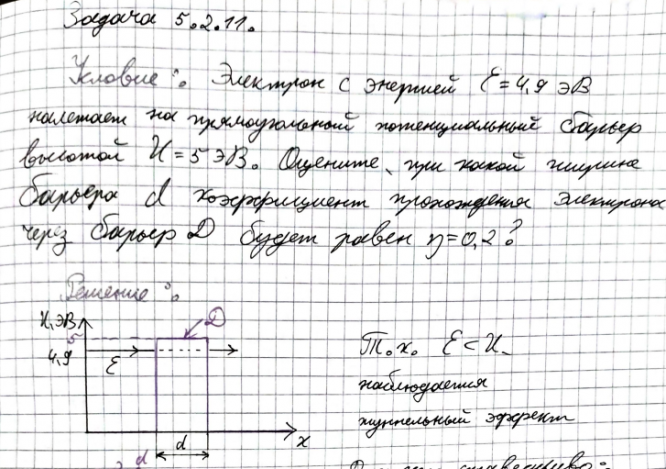 Задача 5.2.11.
Условие: Электрон с энергией Ɛ = 4,9 эВ
налетает на прямоугольный потенциальный барьер
высотой U = 5 эВ. Оцените, при какой ширине
барьера d коэффициент прохождения электрона
через барьер D будет равен η = 0,2?
Решение:
U, эВ
D
5
4,9
Ɛ
d
x
d
Т.к. Ɛ < U
наблюдается
туннельный эффект